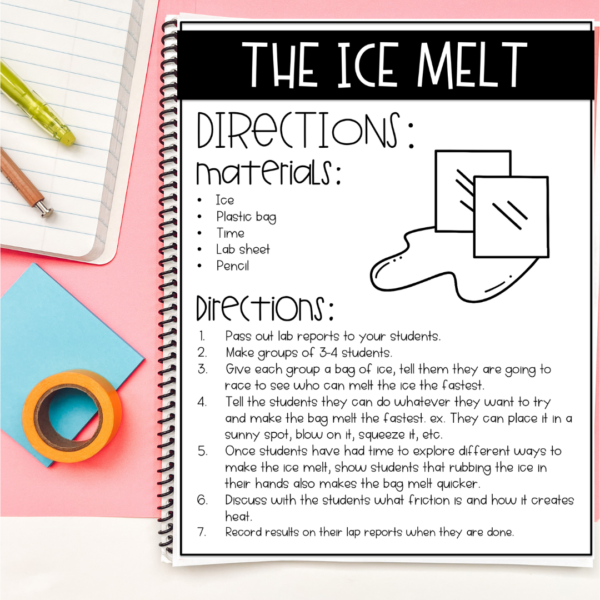 THE ICE MELT
DIRECTIONS:
materials:
• Ice
• Plastic bag
• Time
• Lab sheet
• Pencil
Directions:
1. Pass out lab reports to your students.
2. Make groups of 3-4 students.
3. Give each group a bag of ice, tell them they are going to
race to see who can melt the ice the fastest.
4. Tell the students they can do whatever they want to try
and make the bag melt the fastest. ex. They can place it in a
sunny spot, blow on it, squeeze it, etc.
5. Once students have had time to explore different ways to
make the ice melt, show students that rubbing the ice in
their hands also makes the bag melt quicker.
6. Discuss with the students what friction is and how it creates
heat.
7. Record results on their lap reports when they are done.